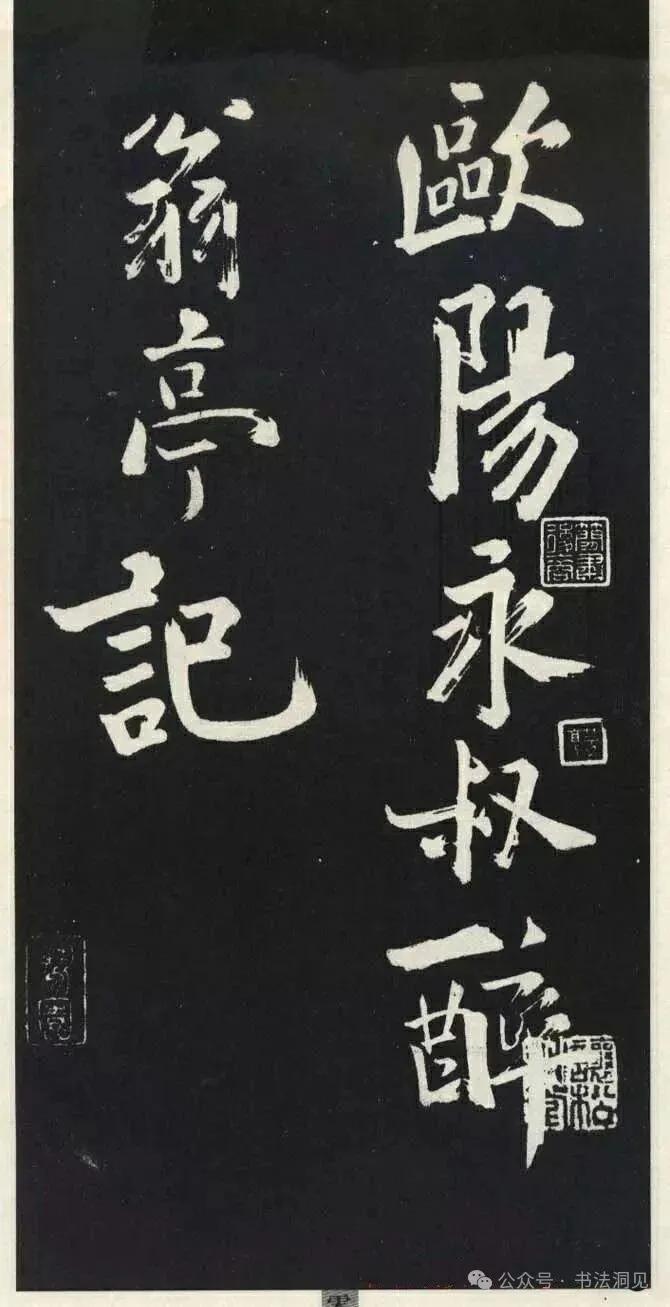 歐陽永叔醉
翁亭記
公众号 · 书法洞见